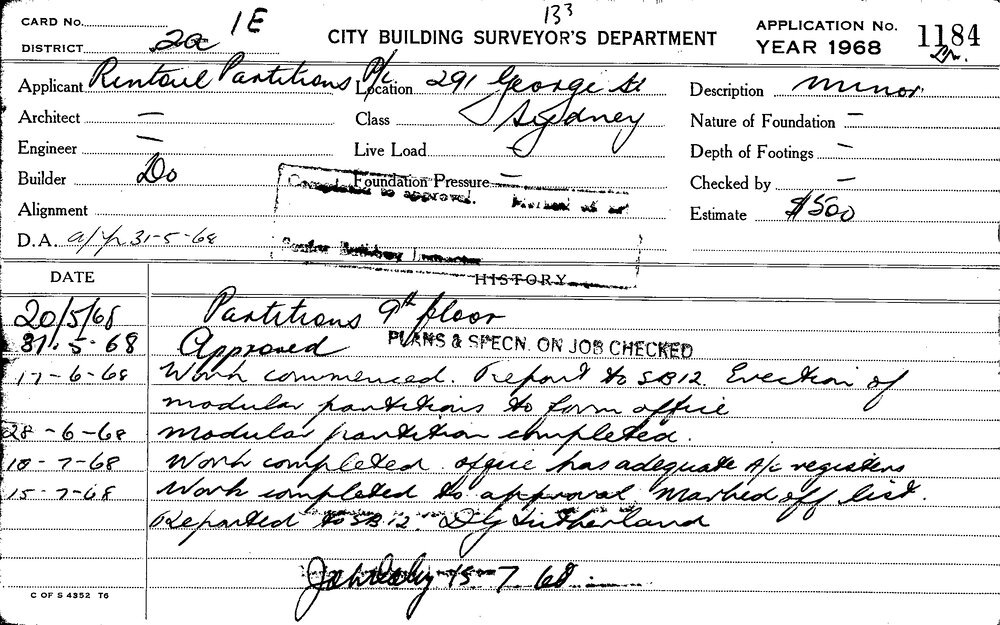 133
CARD No. 1E
CITY BUILDING SURVEYOR'S DEPARTMENT
APPLICATION No. 1184
DISTRICT 2a
YEAR 1968
Applicant Rintoul Partitions P/L Location 291 George St Description minor
Architect — Class Sydney Nature of Foundation —
Engineer — Live Load — Depth of Footings —
Builder Do Foundation Pressure — Checked by —
Completed to approval. Marked off
Alignment Estimate $500
D.A. 31-5-68
Senior Building Inspector
DATE HISTORY
20/5/68 Partitions 9th floor
31.5-68 Approved PLANS & SPECN. ON JOB CHECKED
17-6-68 Work commenced. Report to SB12. Erection of
modular partitions to form office
28-6-68 modular partition completed.
10-7-68 Work completed. office has adequate A/c registers
15-7-68 Work completed to approval. Marked off list.
Reported to SB12. D G Sutherland
15 7 68
C OF S 4352 T6